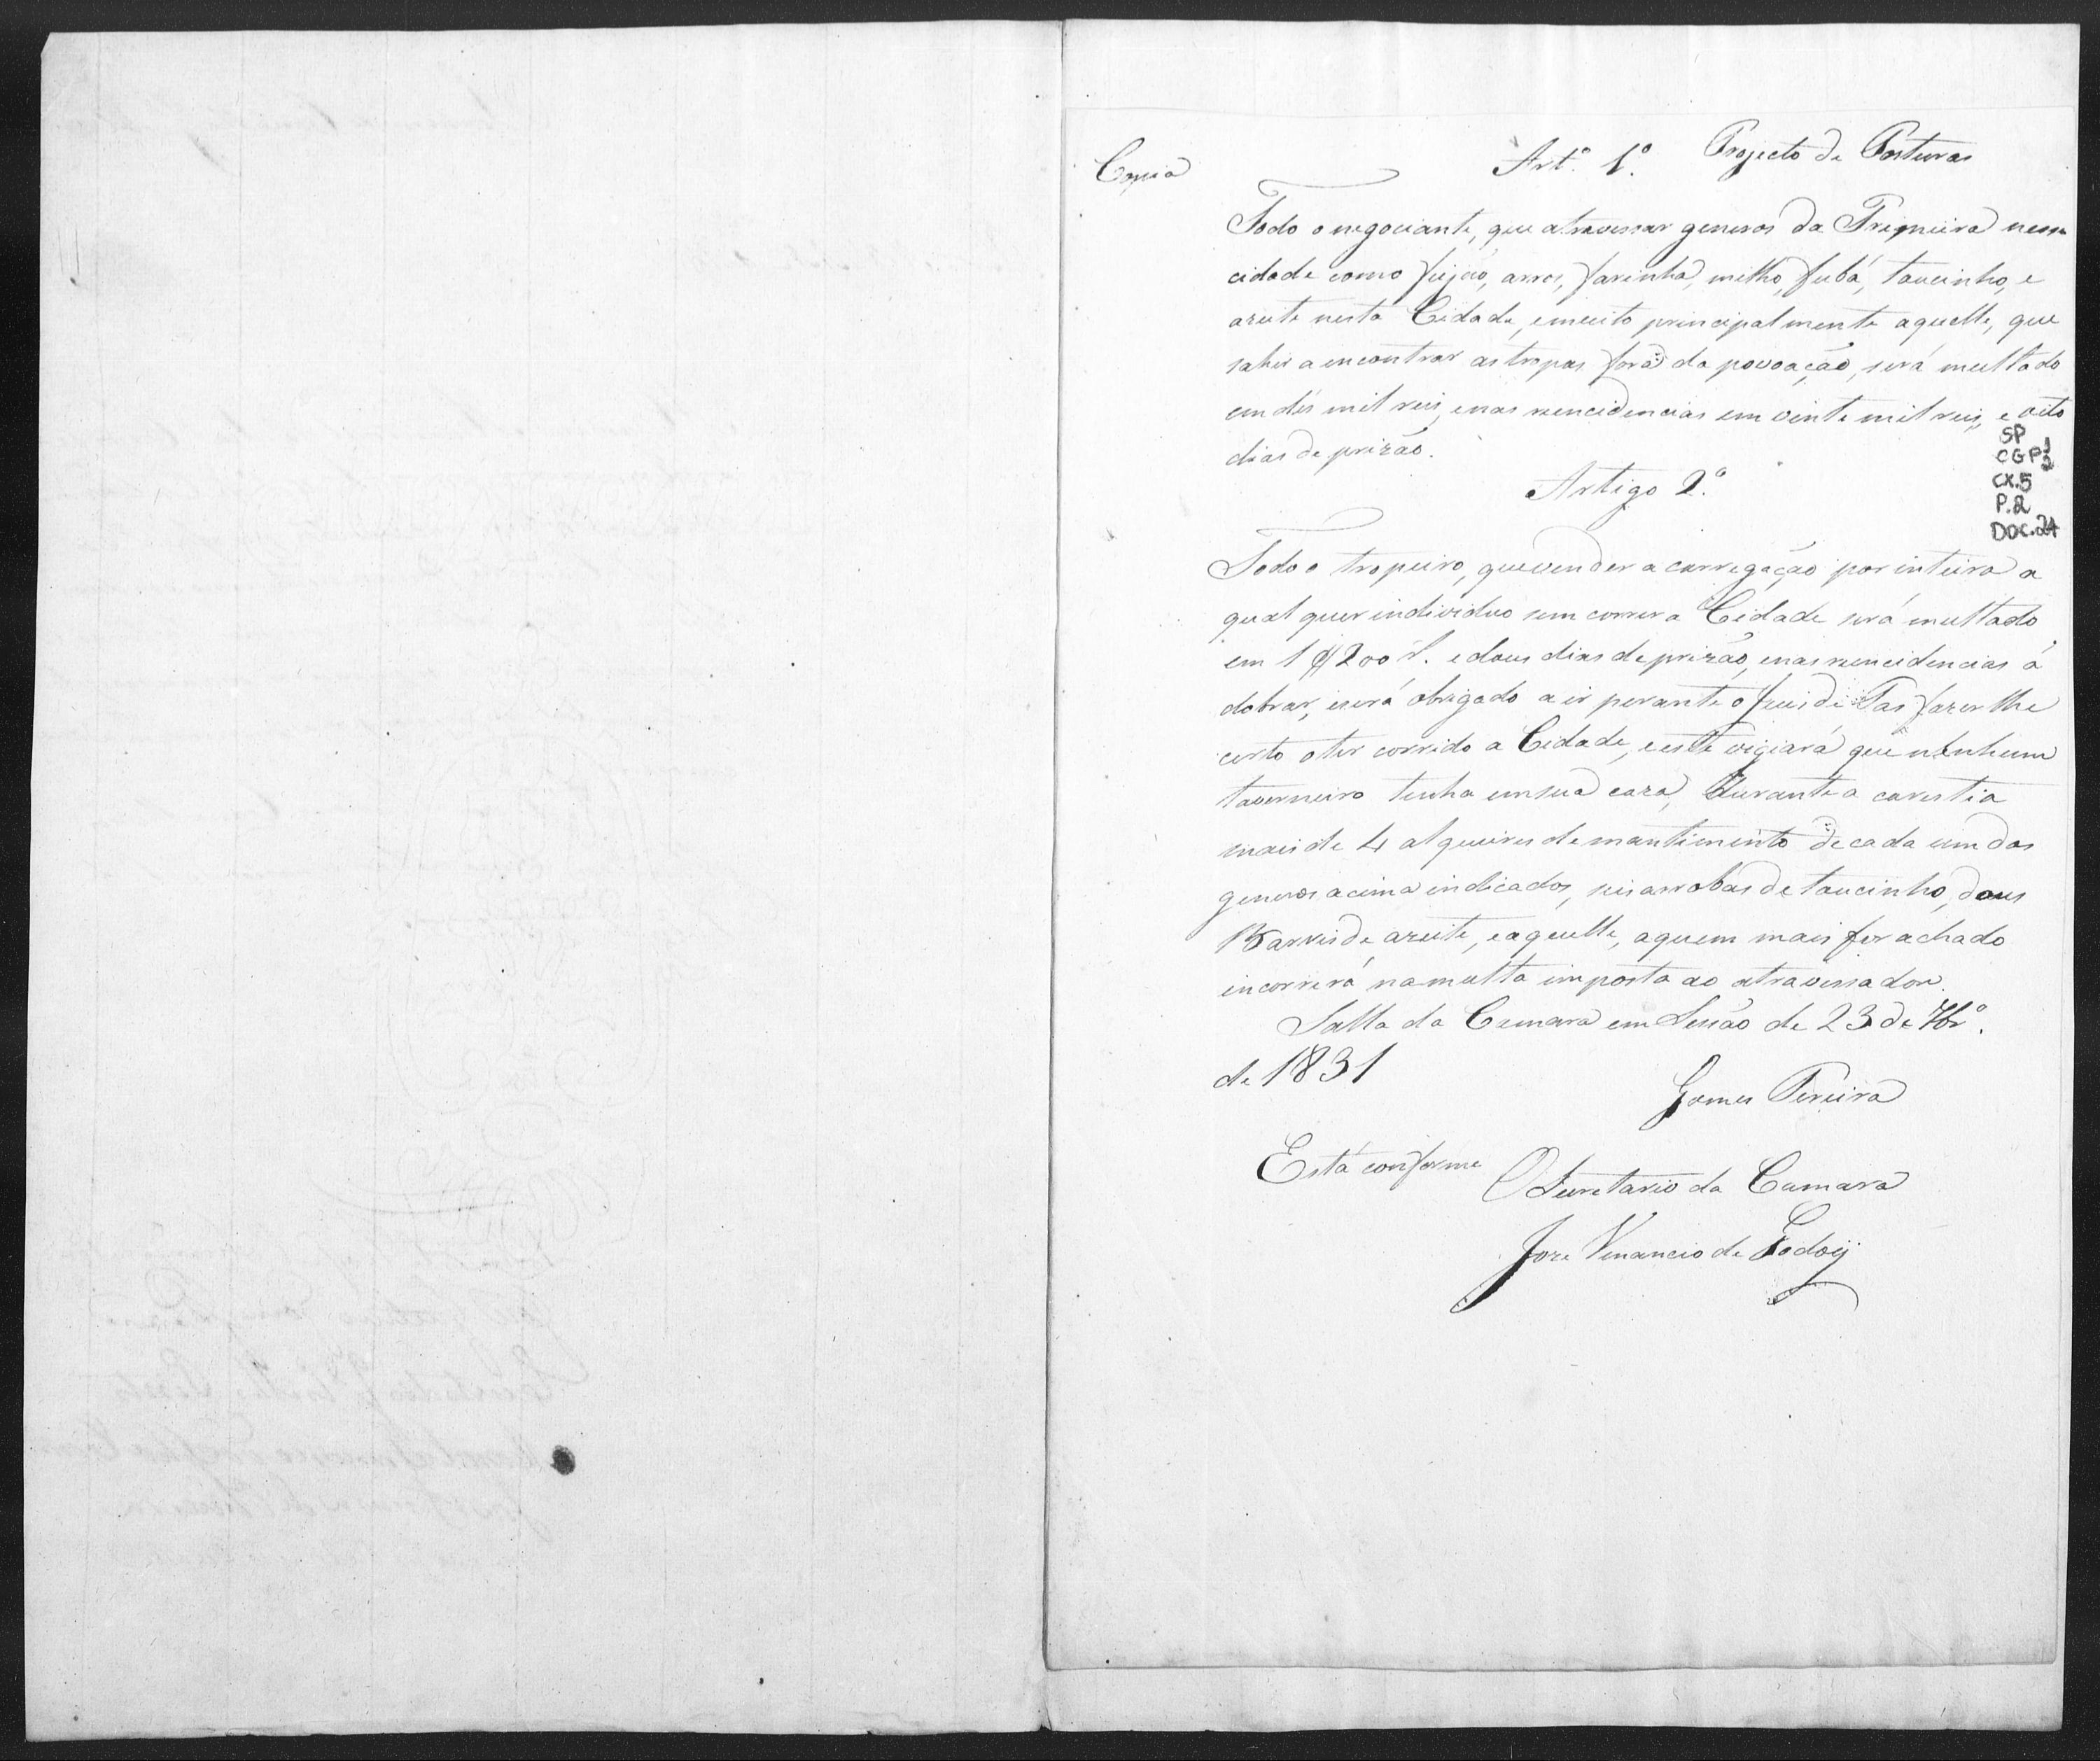 Copia
Artº. 1º. Projecto de Posturas
Todo o negociante, que atravessar generos da Primeira neces
cidade como feijão, arros, farinha, milho, fubá, toucinho, e
azeite nesta Cidade, e muito principalmente aquelle, que
sahir a encontrar as tropas fora da povoação, será multado
em dés mil reis, e nas reincidencias em vinte mil reis, e oito
dias de prizão.
SP
CGP1
CX.5
P.2
DOC.24
Artigo 2º.
Todo o tropeiro, que vender a carregação por inteira a
qual quer individuo sem correr a Cidade será multado
em 1$200 r. e dous dias de prizão, e nas reincidencias á
dobrar, e será obrigado a ir perante o Juis de Pas fazer lhe
certo o ter corrido a Cidade, e este vigiará que nenhum
taverneiro tenha em sua caza, durante a carestia
mais de 4 alqueires de mantimento de cada um dos
generos acima indicados, seis arrobas de toucinho, dous
Barris de azeite, e aquelle, a quem mais for achado
incorrerá na multa imposta ao atravessador.
Salla da Camara em Sessão de 23 de 7brº.
de 1831
Gomes Pereira
Está conforme
O Secretario da Camara
Joze Venancio de Godoy